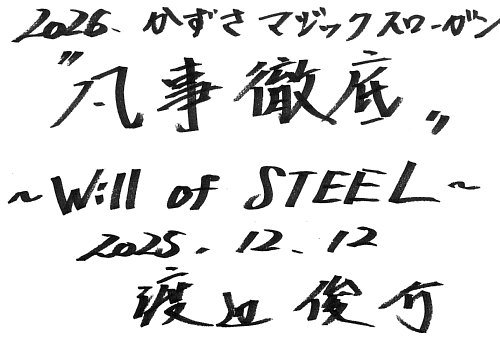 2026. かずさマジックスローガン
"凡事徹底"
~Will of STEEL~
2025.12.12
渡辺俊介